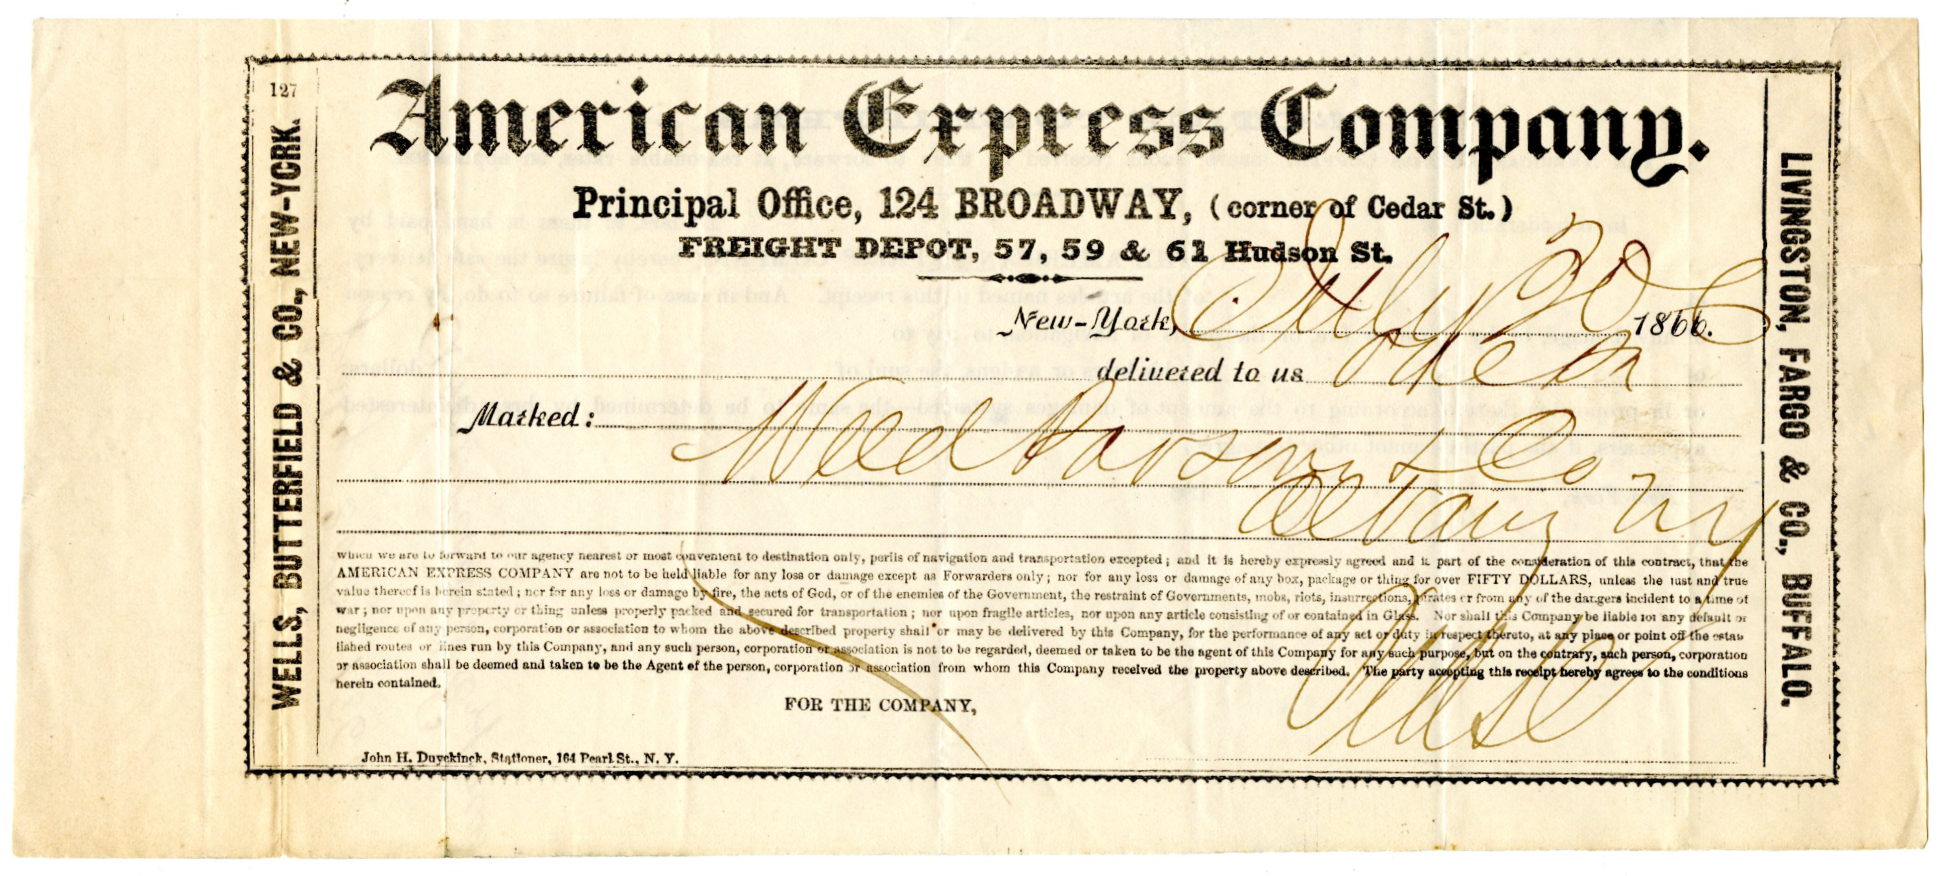 127
American Express Company.
Principal Office, 124 BROADWAY, (corner of Cedar St.)
FREIGHT DEPOT, 57, 59 & 61 Hudson St.
New-York, July 30 1866.
delivered to us
Marked: Weed Parsons & Co
Albany NY
which we are to forward to our agency nearest or most convenient to destination only, perils of navigation and transportation excepted; and it is hereby expressly agreed and is part of the consideration of this contract, that the
AMERICAN EXPRESS COMPANY are not to be held liable for any loss or damage except as Forwarders only; nor for any loss or damage of any box, package or thing for over FIFTY DOLLARS, unless the just and true
value thereof is herein stated; nor for any loss or damage by fire, the acts of God, or of the enemies of the Government, the restraint of Governments, mobs, riots, insurrections, pirates or from any of the dangers incident to a time of
war; nor upon any property or thing unless properly packed and secured for transportation; nor upon fragile articles, nor upon any article consisting of or contained in Glass. Nor shall this Company be liable for any default or
negligence of any person, corporation or association to whom the above described property shall or may be delivered by this Company, for the performance of any act or duty in respect thereto, at any place or point off the estab
lished routes or lines run by this Company, and any such person, corporation or association is not to be regarded, deemed or taken to be the agent of this Company for any such purpose, but on the contrary, such person, corporation
or association shall be deemed and taken to be the Agent of the person, corporation or association from whom this Company received the property above described. The party accepting this receipt hereby agrees to the conditions
herein contained.
FOR THE COMPANY,
John H. Duyckinck, Stationer, 164 Pearl St., N. Y.
WELLS, BUTTERFIELD & CO., NEW-YORK.
LIVINGSTON, FARGO & CO., BUFFALO.